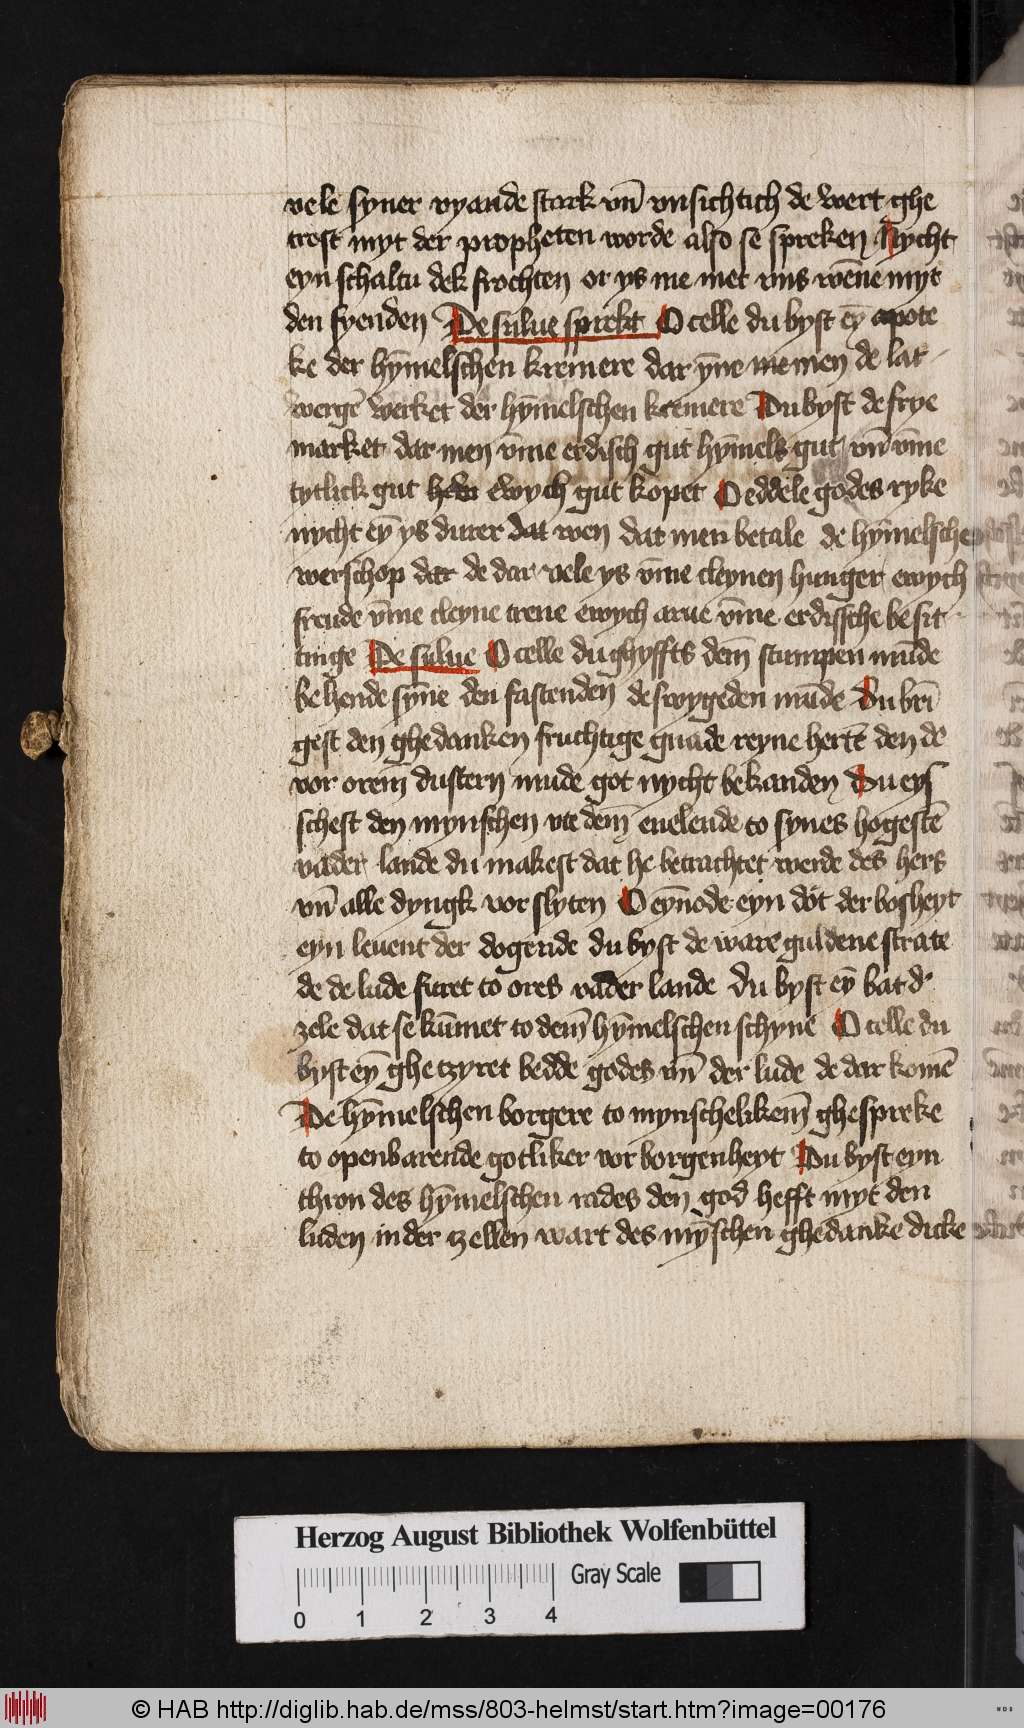 vele syner vyande stark vn̄ vnsichtich de wert ghe
trost myt der propheten worde also se spreken Nycht
eyn schaltu dek frochten or ys me met vns wēne myt
den fyenden De sulue sprekt O celle du byst eȳ apote
ke der hȳmelschen kremere dar ȳne me men de lat
wergē werket der hȳmelschen kremere Du byst de frye
market dar men v̄me erdisch gut hȳmels gut vn̄ v̄me
tytlick gut ewych gut kopet O eddele godes ryke
nycht eȳ ys durer dat wen dat men betale de hȳmelsche
werschop dar de dar vele ys v̄me cleynen hunger ewych
freude v̄me cleyne trene ewych arue v̄me erdissche besit
tinge De sulue O celle du ghyffts dem̄ stumpen mūde
behende sȳne den fastenden de swygeden mūde Du brī
gest den ghedanken fruchtige gnade reyne hertē den de
vor orem dustern mude got nycht bekanden Du eys
schest den mynschen vte dem̄ enelende to synes hogestē
vader lande du makest dat he betrachtet werde des hers
vn̄ alle dyngk vor slyten O eȳnode eyn dot der bosheyt
eyn leuent der dogende du byst de ware guldene strate
de de lude furet to ores vader lande du byst eȳ bat d'
zele dat se kūmet to dem̄ hȳmelschen schyne O celle du
byst eȳ ghe tzyret bedde godes vn̄ der lude de dar komē
De hȳmelschen borgere to mynschelikem̄ ghespreke
to openbarende gotliker vor borgenheyt Du byst eyn
thron des hȳmelschen rades den god hefft myt den
luden in der tzellen wart des mȳschen ghedanke dicke
Herzog August Bibliothek Wolfenbüttel
Gray Scale
0 1 2 3 4
© HAB http://diglib.hab.de/mss/803-helmst/start.htm?image=00176